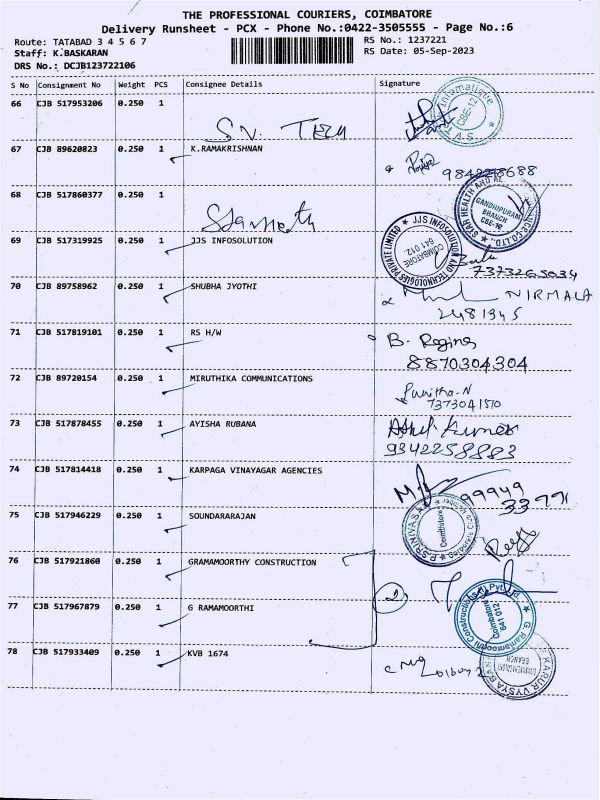 THE PROFESSIONAL COURIERS, COIMBATORE
Delivery Runsheet - PCX - Phone No.:0422-3505555 - Page No.:6
Route: TATABAD 3 4 5 6 7
RS No.: 1237221
Staff: K.BASKARAN
RS Date: 05-Sep-2023
DRS No.: DCJB123722106
S No Consignment No Weight PCS Consignee Details Signature
66 CJB 517953206 0.250 1
S.V. TECH
Informatique CBE-12
67 CJB 89620823 0.250 1 K.RAMAKRISHNAN
68 CJB 517860377 0.250 1
STAR HEALTH AND GANDHIPURAM BRANCH CBE-12 CO.LTD.,
69 CJB 517319925 0.250 1 JJS INFOSOLUTION
JJS INFOSOLUTION AND TECHNOLOGIES PRIVATE LIMITED COIMBATORE 641 012.
70 CJB 89758962 0.250 1 SHUBHA JYOTHI
NIRMALA
2481945
71 CJB 517819101 0.250 1 RS H/W
B. Regina
8870304304
72 CJB 89720154 0.250 1 MIRUTHIKA COMMUNICATIONS
Punitha-N
7373041510
73 CJB 517878455 0.250 1 AYISHA RUBANA
Kumar
9342258883
74 CJB 517814418 0.250 1 KARPAGA VINAYAGAR AGENCIES
99949
75 CJB 517946229 0.250 1 SOUNDARARAJAN
Coimbatore
76 CJB 517921860 0.250 1 GRAMAMOORTHY CONSTRUCTION
2
77 CJB 517967879 0.250 1 G RAMAMOORTHI
G. Ramamoorthi Constructions (I) Pvt Ltd Coimbatore 641 012
78 CJB 517933409 0.250 1 KVB 1674
KARUR VYSYA BANK BRANCH